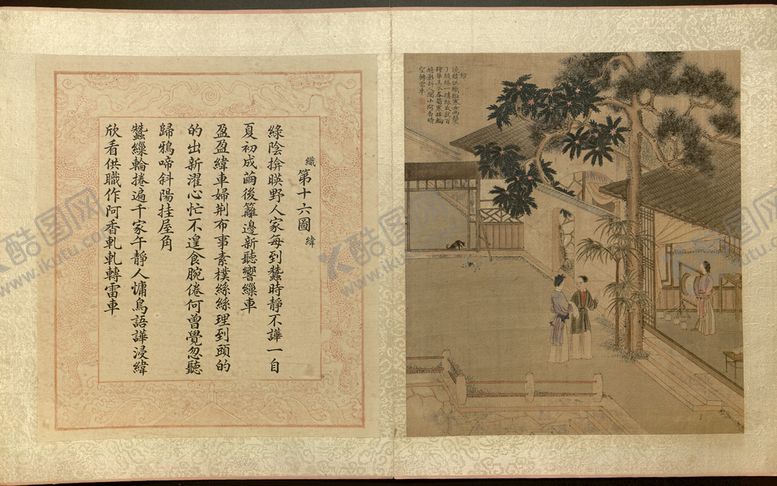 織 第十六圖 緯
綠陰揜暎野人家每到蠶時靜不譁一自
夏初成繭後籬邊新聽響繅車
盈盈緯車婦荆布事素樸絲絲理到頭的
的出新濯心忙不遑食腕倦何曾覺忽聽
歸鴉啼斜陽挂屋角
蠶繅輪捲遍千家午靜人慵鳥語譁浸緯
欣看供織作阿香軋軋轉雷車
緯
空轉雷車
酷图网